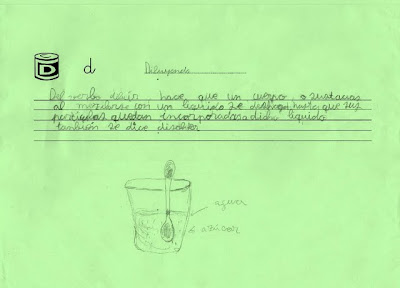 D
d
Diluyendo
Del verbo diluir, hace que un cuerpo, o sustacias
al mezclarse con un líquido se hasta que sus
partículas quedan incorporadas a dicho líquido
también se dice disolver
agua
o azúcar